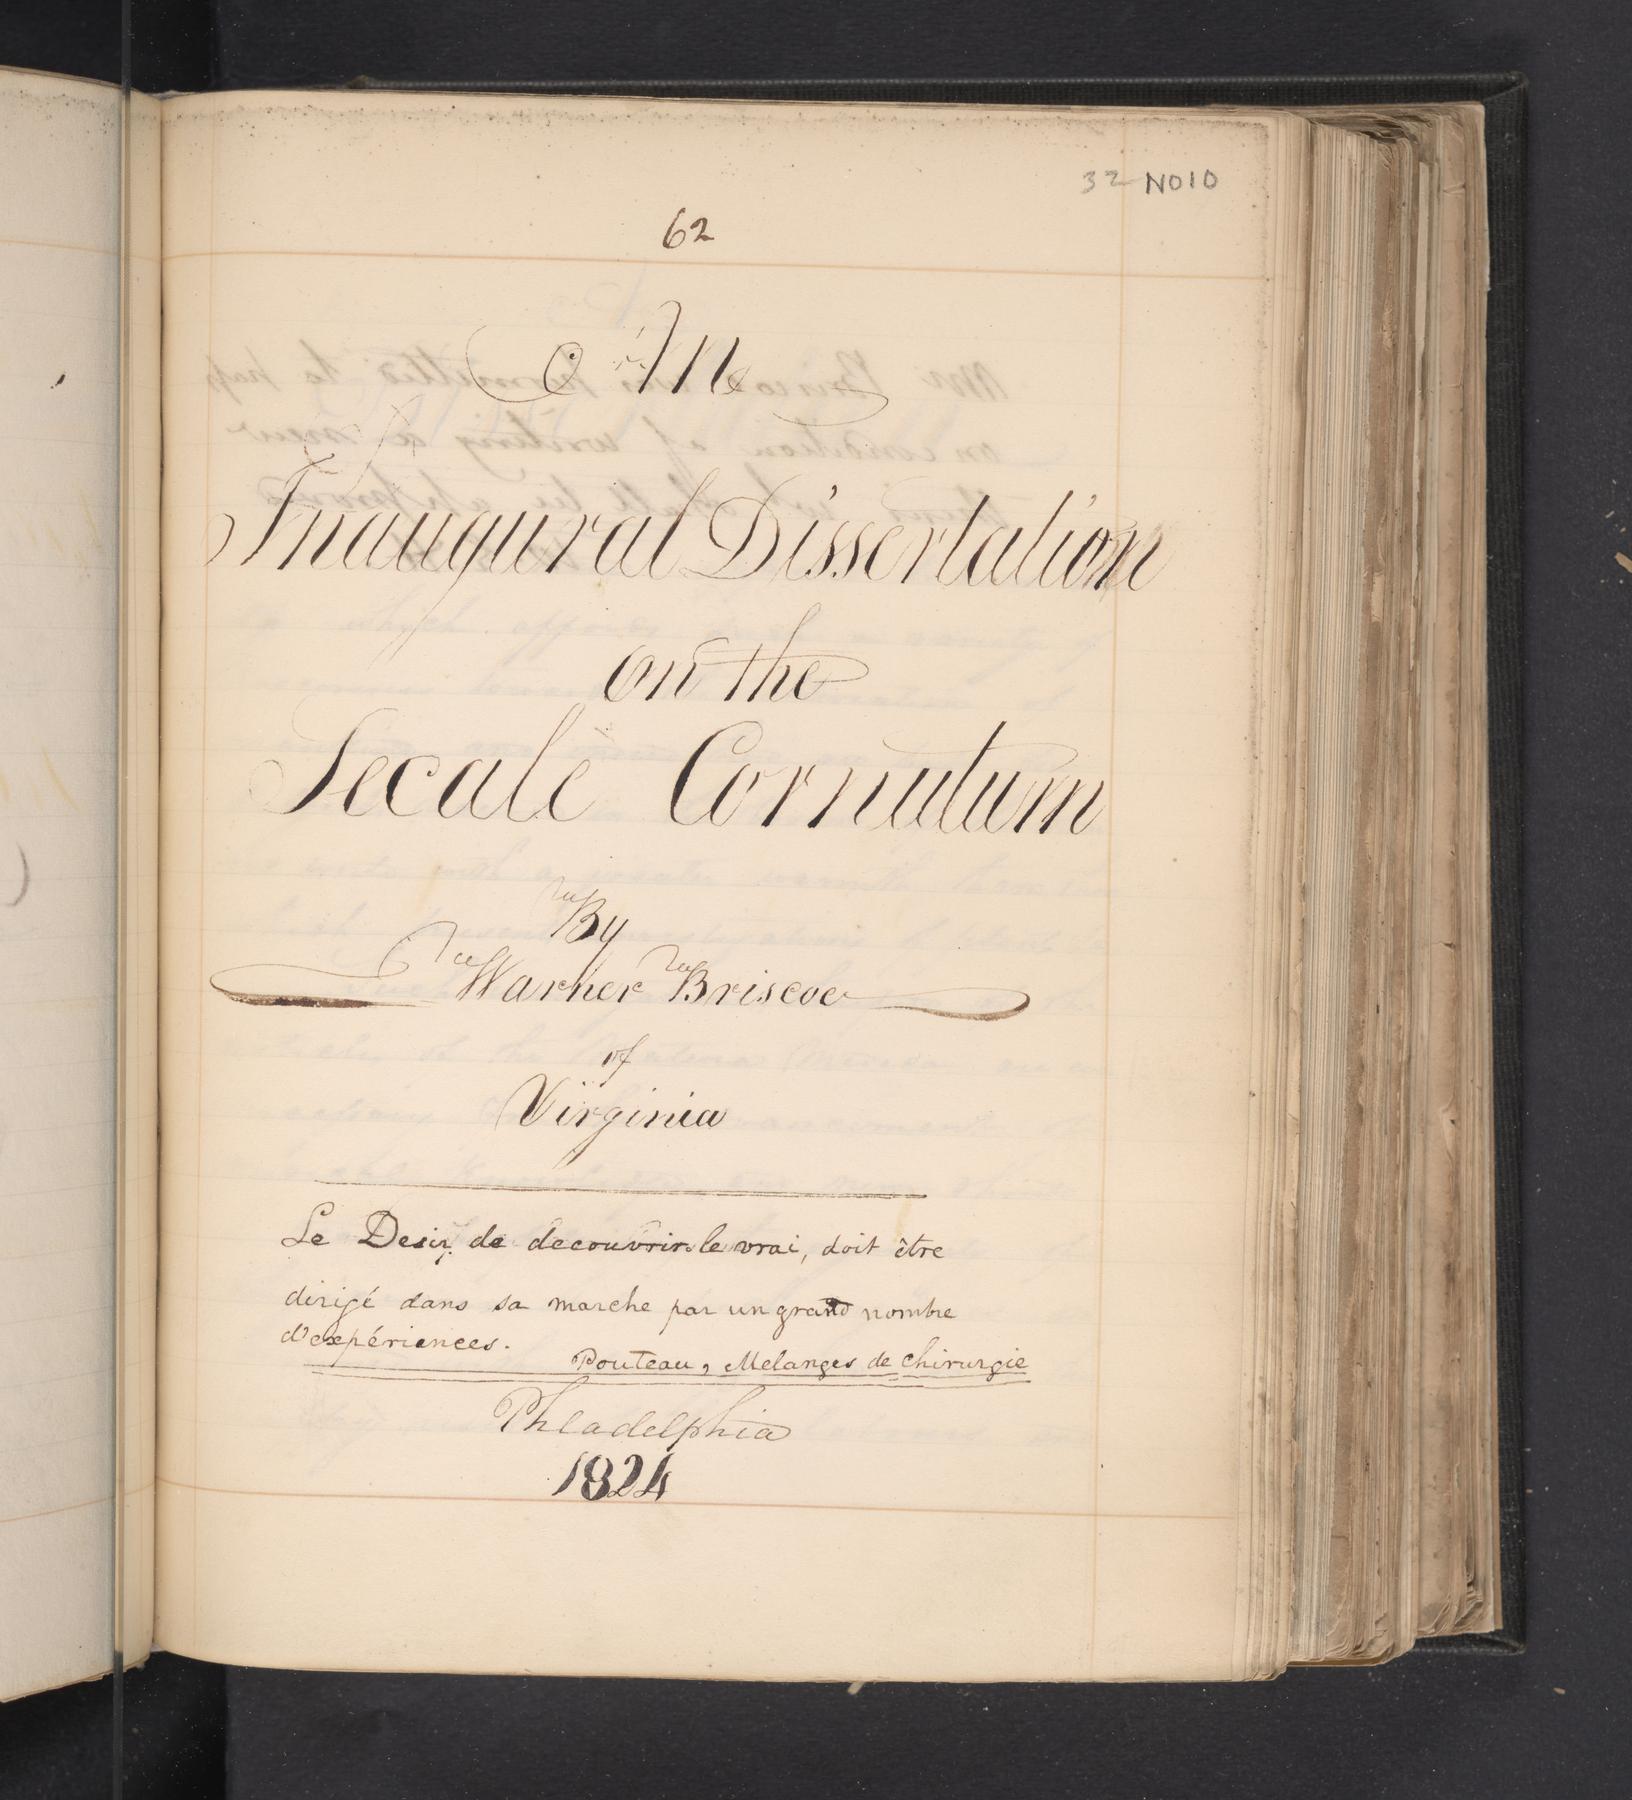 32 NO10
62
An
Inaugural Dissertation
on the
Secale Cornutum
By
Warner Briscoe
of
Virginia
Le Desir de decouvrir le vrai, doit être
dirigé dans sa marche par un grand nombre
d'expériences.
Pouteau, Melanges de chirurgie
Phladelphia
1824